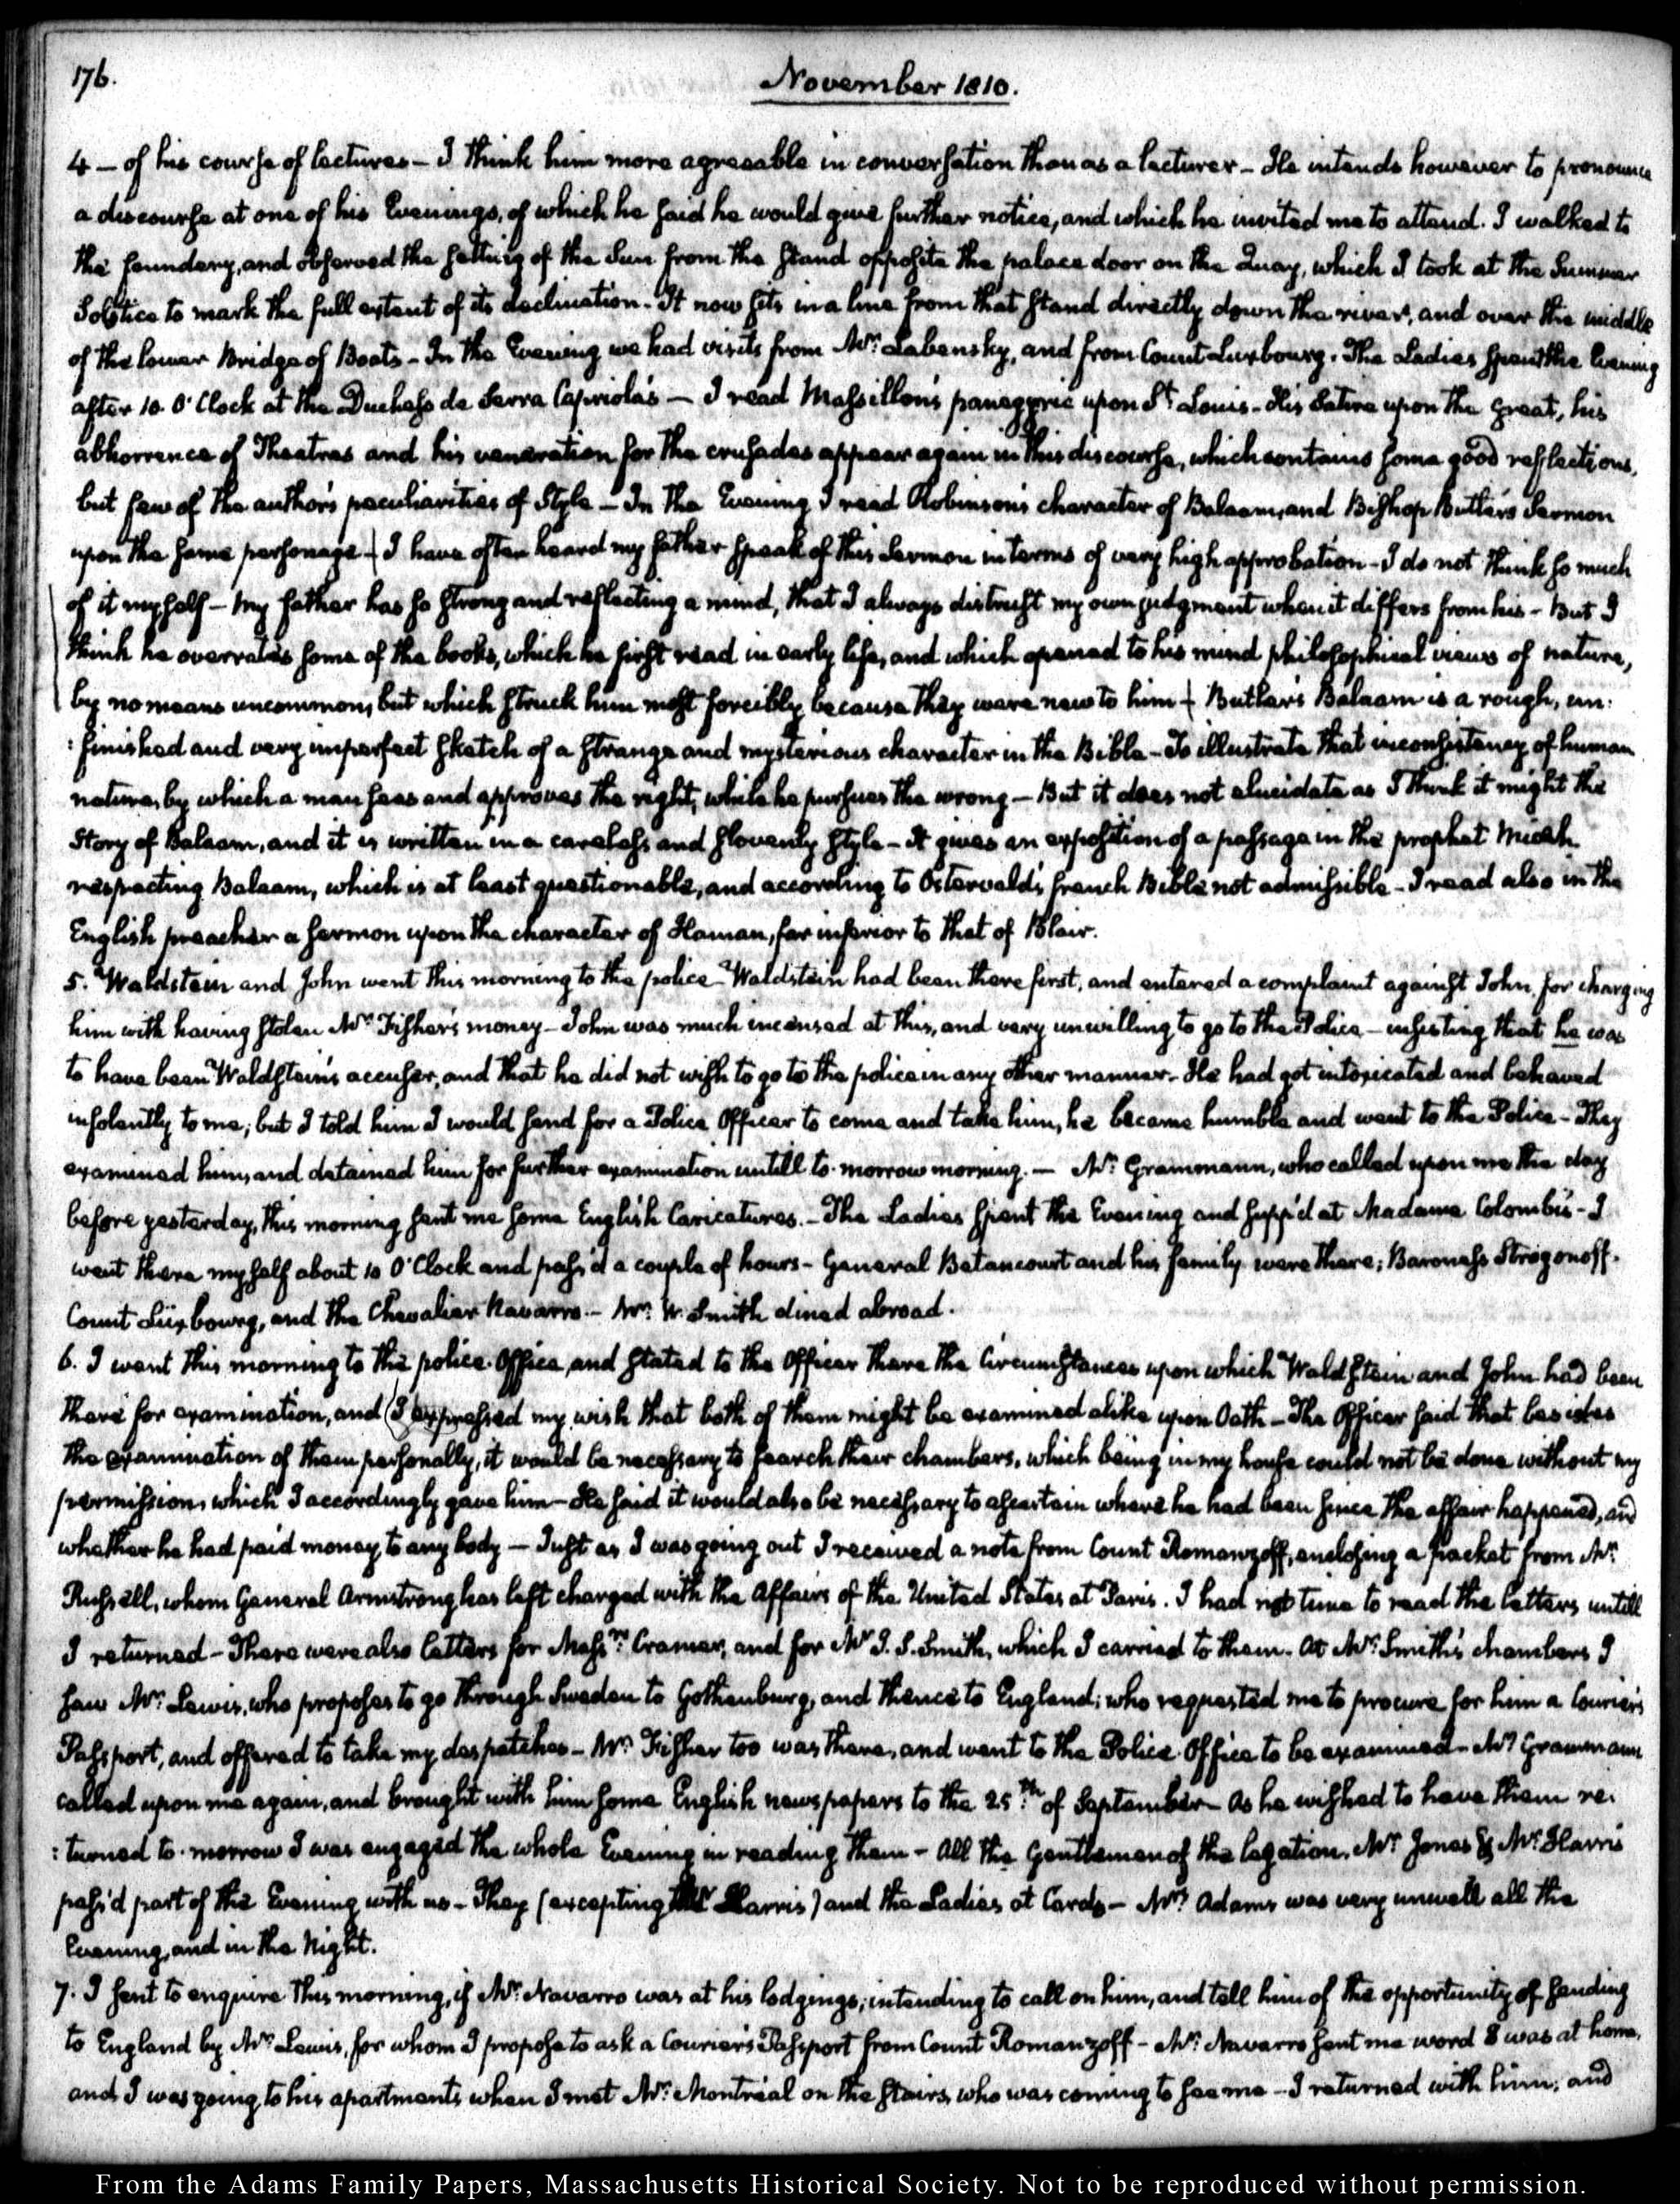 176.
November 1810.
4 – of his course of lectures – I think him more agreeable in conversation than as a lecturer – He intends however to pronounce
a discourse at one of his Evenings, of which he said he would give further notice, and which he invited me to attend. I walked to
the foundery, and observed the setting of the Sun from the stand opposite the palace door on the Quay, which I took at the Summer
Solstice to mark the full extent of its declination. It now sets in a line from that stand directly down the river, and over the middle
of the lower Bridge of Boats – In the Evening we had visits from Mr. Labensky, and from Count Luxbourg. The Ladies spent the Evening
after 10. O'Clock at the Duchess de Serra Capriola's – I read Massillon's panegyric upon St. Louis – His Satire upon the great, his
abhorrence of Theatres and his veneration for the crusades appear again in this discourse, which contains some good reflections,
but few of the author's peculiarities of Style – In the Evening I read Robinson's character of Balaam, and Bishop Butler's Sermon
upon the same personage – I have often heard my father speak of this Sermon in terms of very high approbation – I do not think so much
of it myself – My father has so strong and reflecting a mind, that I always distrust my own judgment when it differs from his – But I
think he overrates some of the books, which he first read in early life, and which opened to his mind philosophical views of nature,
by no means uncommon, but which struck him most forcibly because they were new to him – Butler's Balaam is a rough, un:
:finished and very imperfect sketch of a strange and mysterious character in the Bible – To illustrate that inconsistency of human
nature, by which a man sees and approves the right, while he pursues the wrong – But it does not elucidate as I think it might the
Story of Balaam, and it is written in a careless and slovenly style – It gives an exposition of a passage in the prophet Micah
respecting Balaam, which is at least questionable, and according to Ostervald's french Bible not admissible – I read also in the
English preacher a sermon upon the character of Haman, far inferior to that of Blair.
5. Waldstein and John went this morning to the police – Waldstein had been there first, and entered a complaint against John, for charging
him with having stolen Mr. Fisher's money – John was much incensed at this, and very unwilling to go to the Police – insisting that he was
to have been Waldstein's accuser, and that he did not wish to go to the police in any other manner. He had got intoxicated and behaved
insolently to me; but I told him I would send for a Police Officer to come and take him, he became humble and went to the Police – They
examined him, and detained him for further examination untill to-morrow morning. – Mr. Grammann, who called upon me the day
before yesterday, this morning sent me some English Caricatures. – The Ladies spent the Evening and supp'd at Madame Colombi's – I
went there myself about 10 O'Clock and pass'd a couple of hours – General Betancourt and his family were there; Baroness Strogonoff.
Count Luxbourg, and the Chevalier Navarro. – Mr. W. Smith dined abroad.
6. I went this morning to the police Office, and stated to the Officer there the Circumstances upon which Waldstein and John had been
there for examination, and I expressed my wish that both of them might be examined alike upon Oath – The Officer said that besides
the examination of them personally, it would be necessary to search their chambers, which being in my house could not be done without my
permission, which I accordingly gave him – He said it would also be necessary to ascertain where he had been since the affair happened, and
whether he had paid money to any body – Just as I was going out I received a note from Count Romanzoff, enclosing a packet from Mr.
Russell, whom General Armstrong has left charged with the Affairs of the United States at Paris. I had not time to read the letters untill
I returned – There were also letters for Messrs. Cramer, and for Mr. J. S. Smith, which I carried to them. At Mr. Smith's chambers I
saw Mr. Lewis, who proposes to go through Sweden to Gothenburg, and thence to England; who requested me to procure for him a Courier's
Passport, and offered to take my despatches – Mr. Fisher too was there, and went to the Police Office to be examined – Mr. Grammann
called upon me again, and brought with him some English newspapers to the 25th. of September – As he wished to have them re:
:turned to-morrow I was engaged the whole Evening in reading them – All the Gentlemen of the legation, Mr. Jones & Mr. Harris
pass'd part of the Evening with us – They (excepting Mr. Harris) and the Ladies at Cards – Mrs. Adams was very unwell all the
Evening, and in the Night.
7. I sent to enquire this morning, if Mr. Navarro was at his lodgings, intending to call on him, and tell him of the opportunity of sending
to England by Mr. Lewis, for whom I propose to ask a Courier's Passport from Count Romanzoff – Mr. Navarro sent me word was at home,
and I was going to his apartments when I met Mr. Montréal on the stairs, who was coming to see me – I returned with him; and
From the Adams Family Papers, Massachusetts Historical Society. Not to be reproduced without permission.